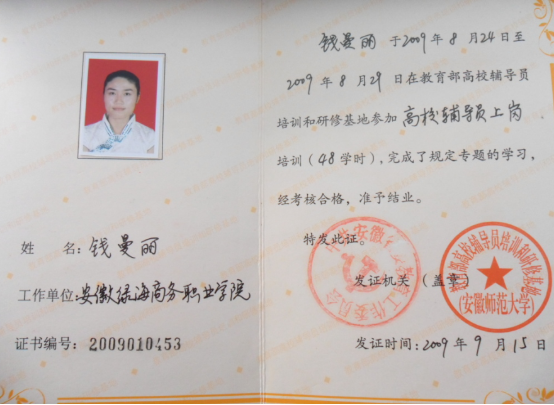 姓 名:钱曼丽
工作单位:安徽绿海商务职业学院
证书编号:2009010453
钱曼丽 于2009年8月24日至
2009年8月29日在教育部高校辅导员
培训和研修基地参加 高校辅导员上岗
培训(48学时),完成了规定专题的学习,
经考核合格,准予结业。
特发此证。
发证机关(盖章)
教育部高校辅导员培训和研修基地
(安徽师范大学)
发证时间:2009年9月15日